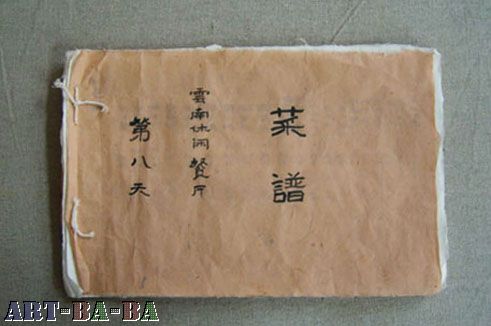 菜譜
雲南休闲餐厅
第八天
ART-BA-BA